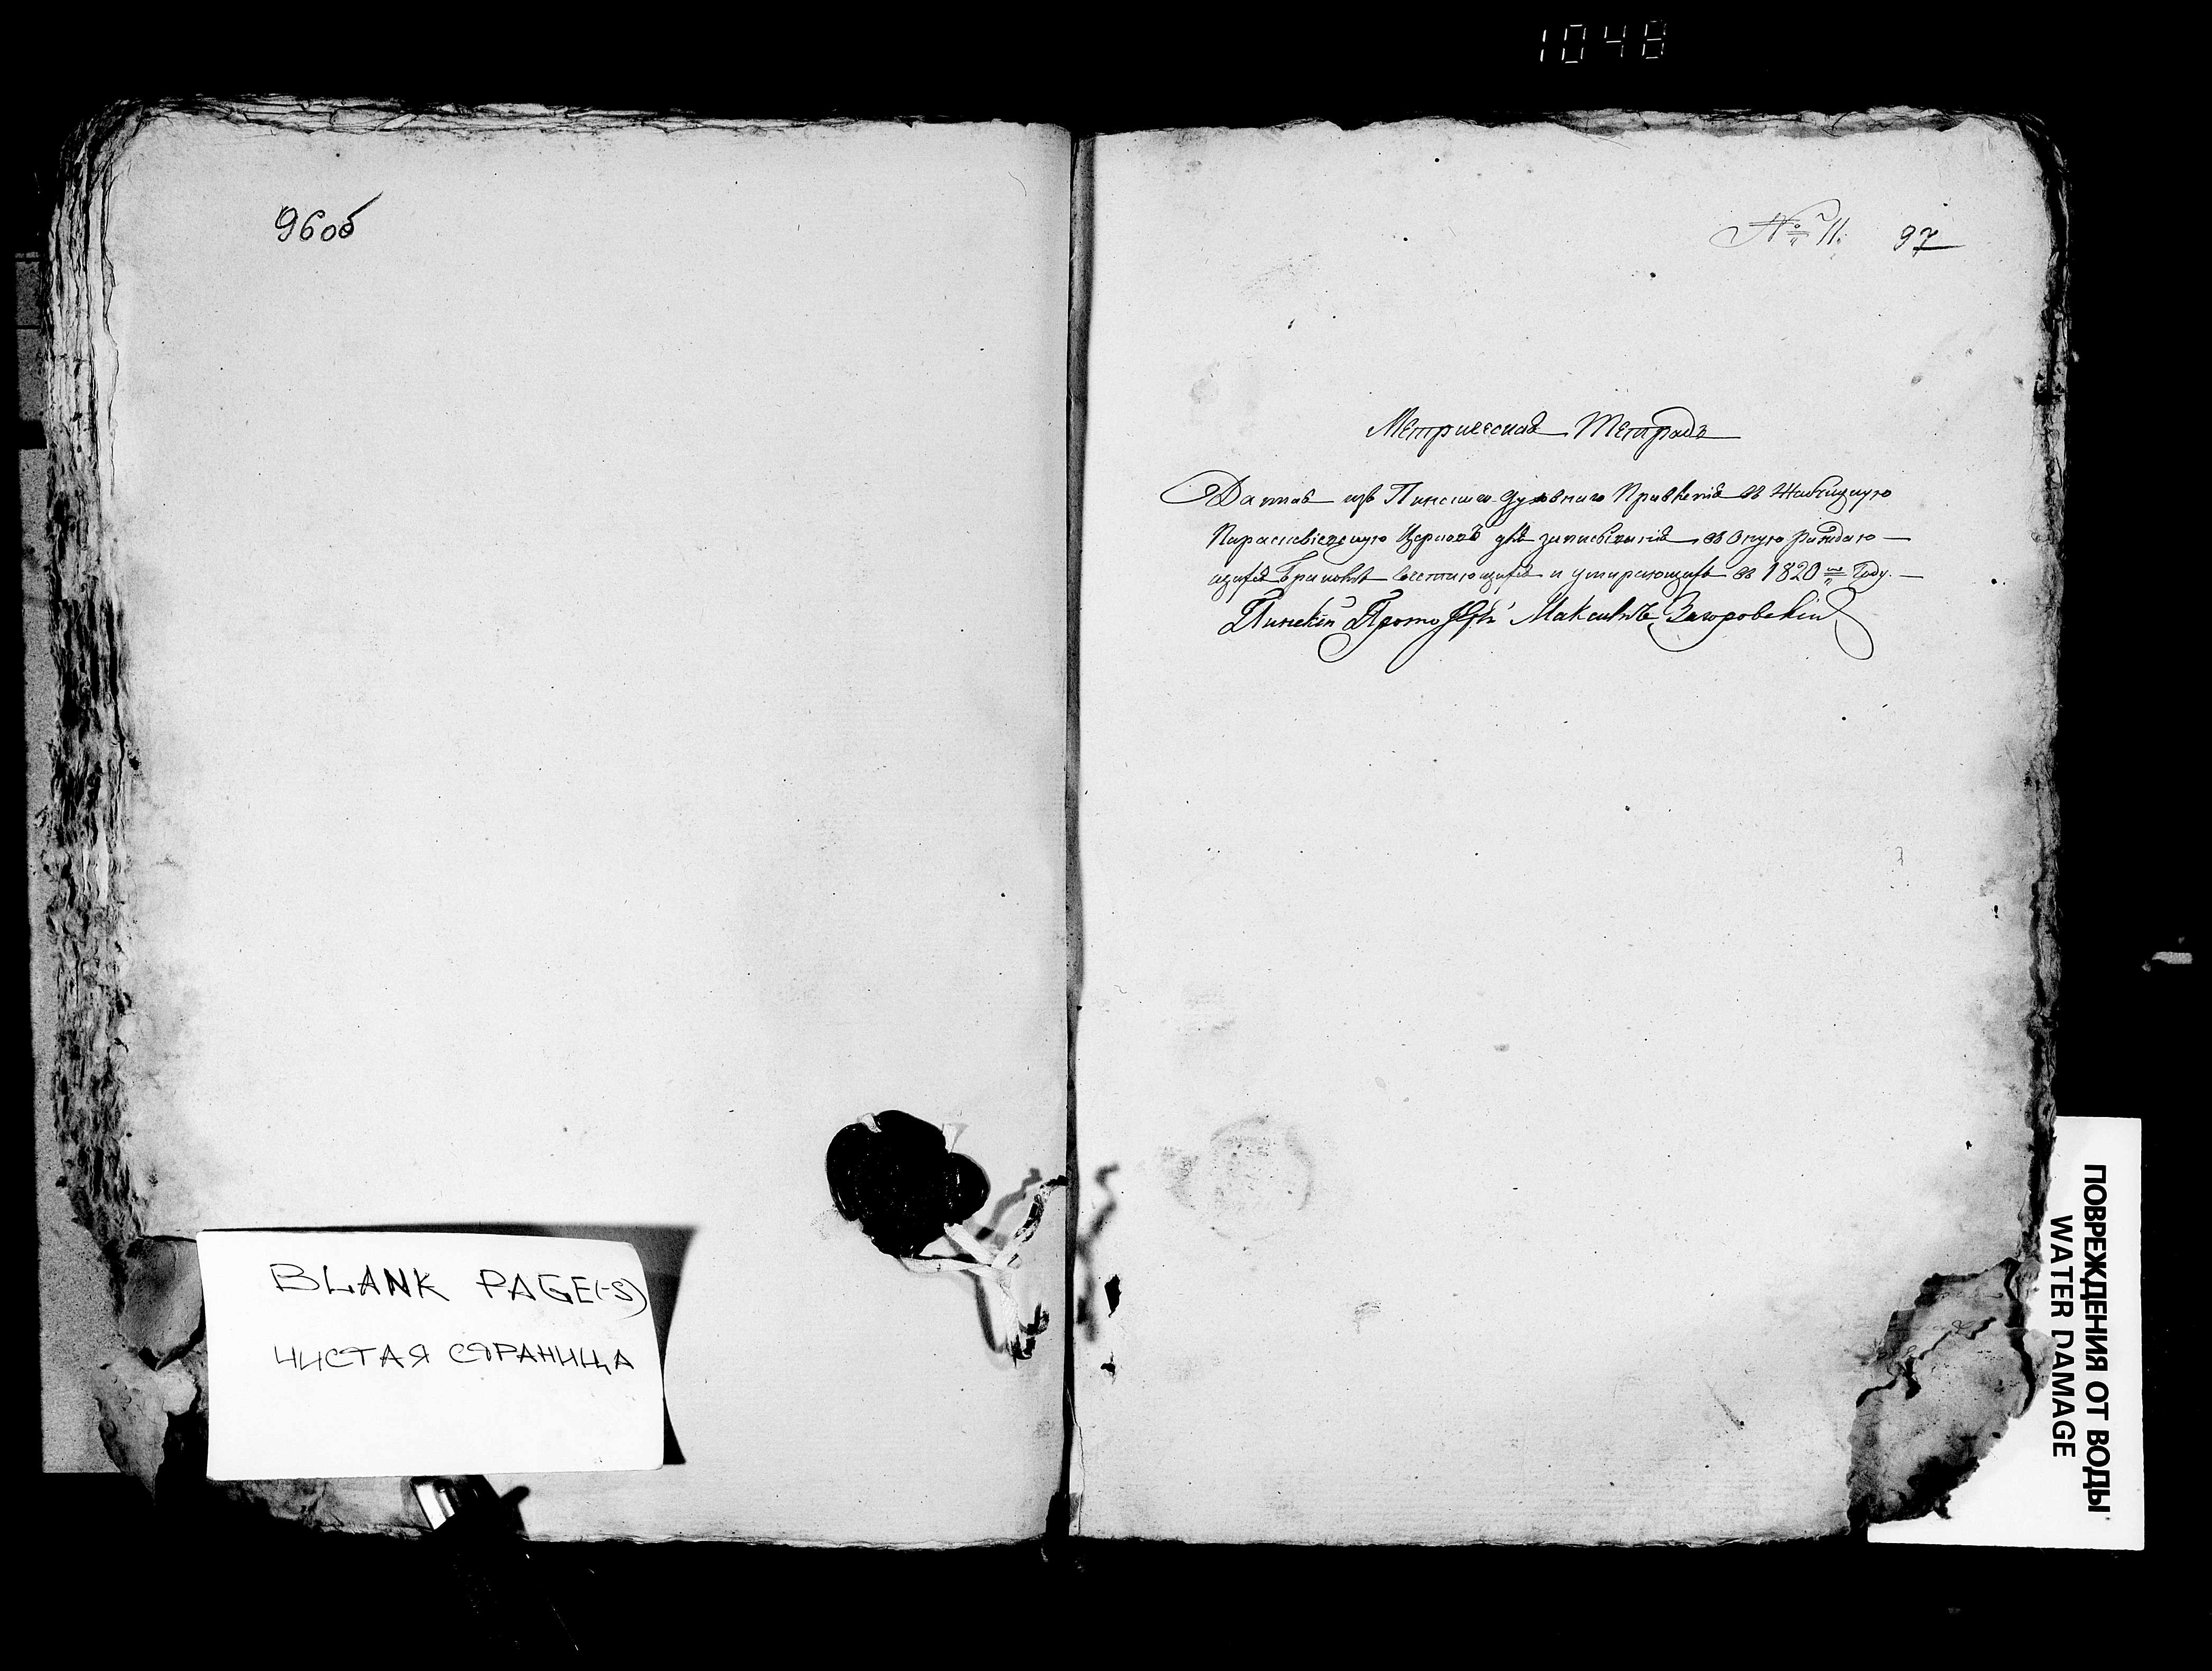 1048
96об
№ 11. 97
Метрическая Тетрадь
Данная изъ Пинскаго Духовнаго Правленія въ
Параскевіевскую Церковь для записыванія въ оную раждаю—
щихся браковъ сочетающихся и умирающихъ въ 1820 м Году.—
Пинскій Прото Максимъ Загоровскій
BLANK PAGE(-S)
ЧИСТАЯ СТРАНИЦА
ПОВРЕЖДЕНИЯ ОТ ВОДЫ
WATER DAMAGE